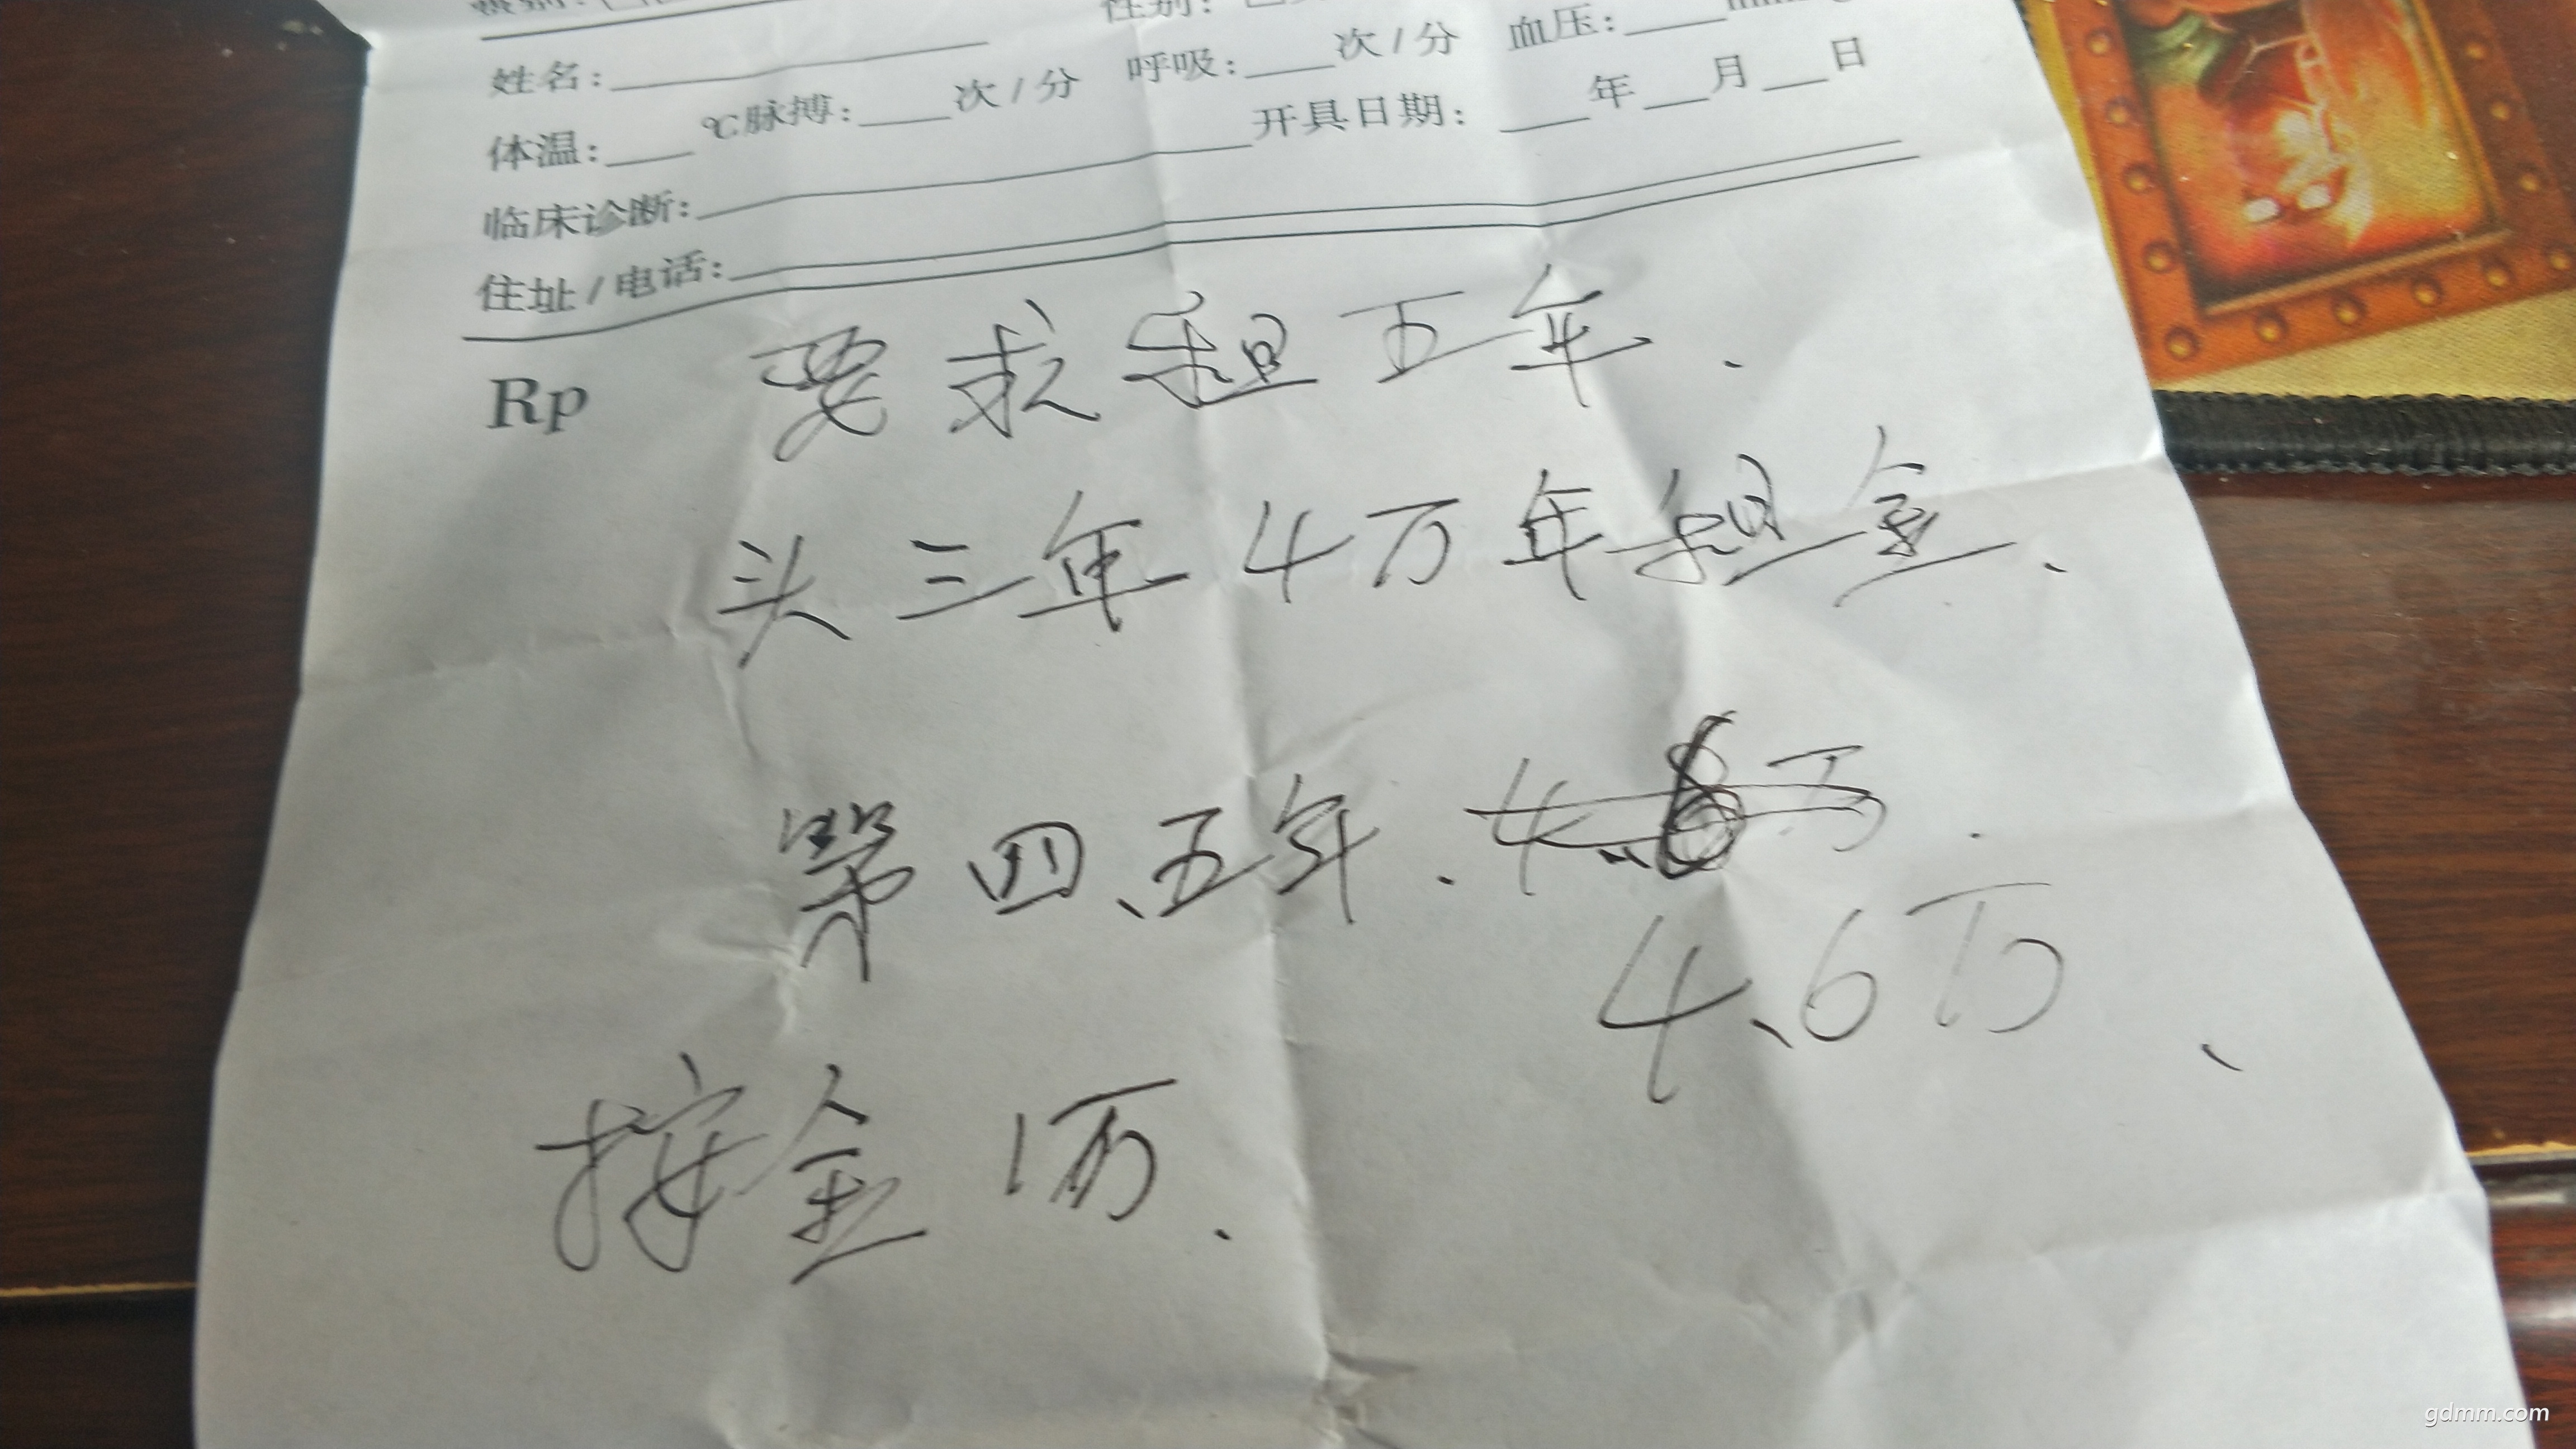 性别:
姓名:
体温: ℃ 脉搏: 次/分 呼吸: 次/分 血压:
临床诊断: 开具日期: 年 月 日
住址/电话:
Rp
要求租五年.
头三年4万年租金、
第四、五年.
4、6万、
按金1万、
gdmm.com